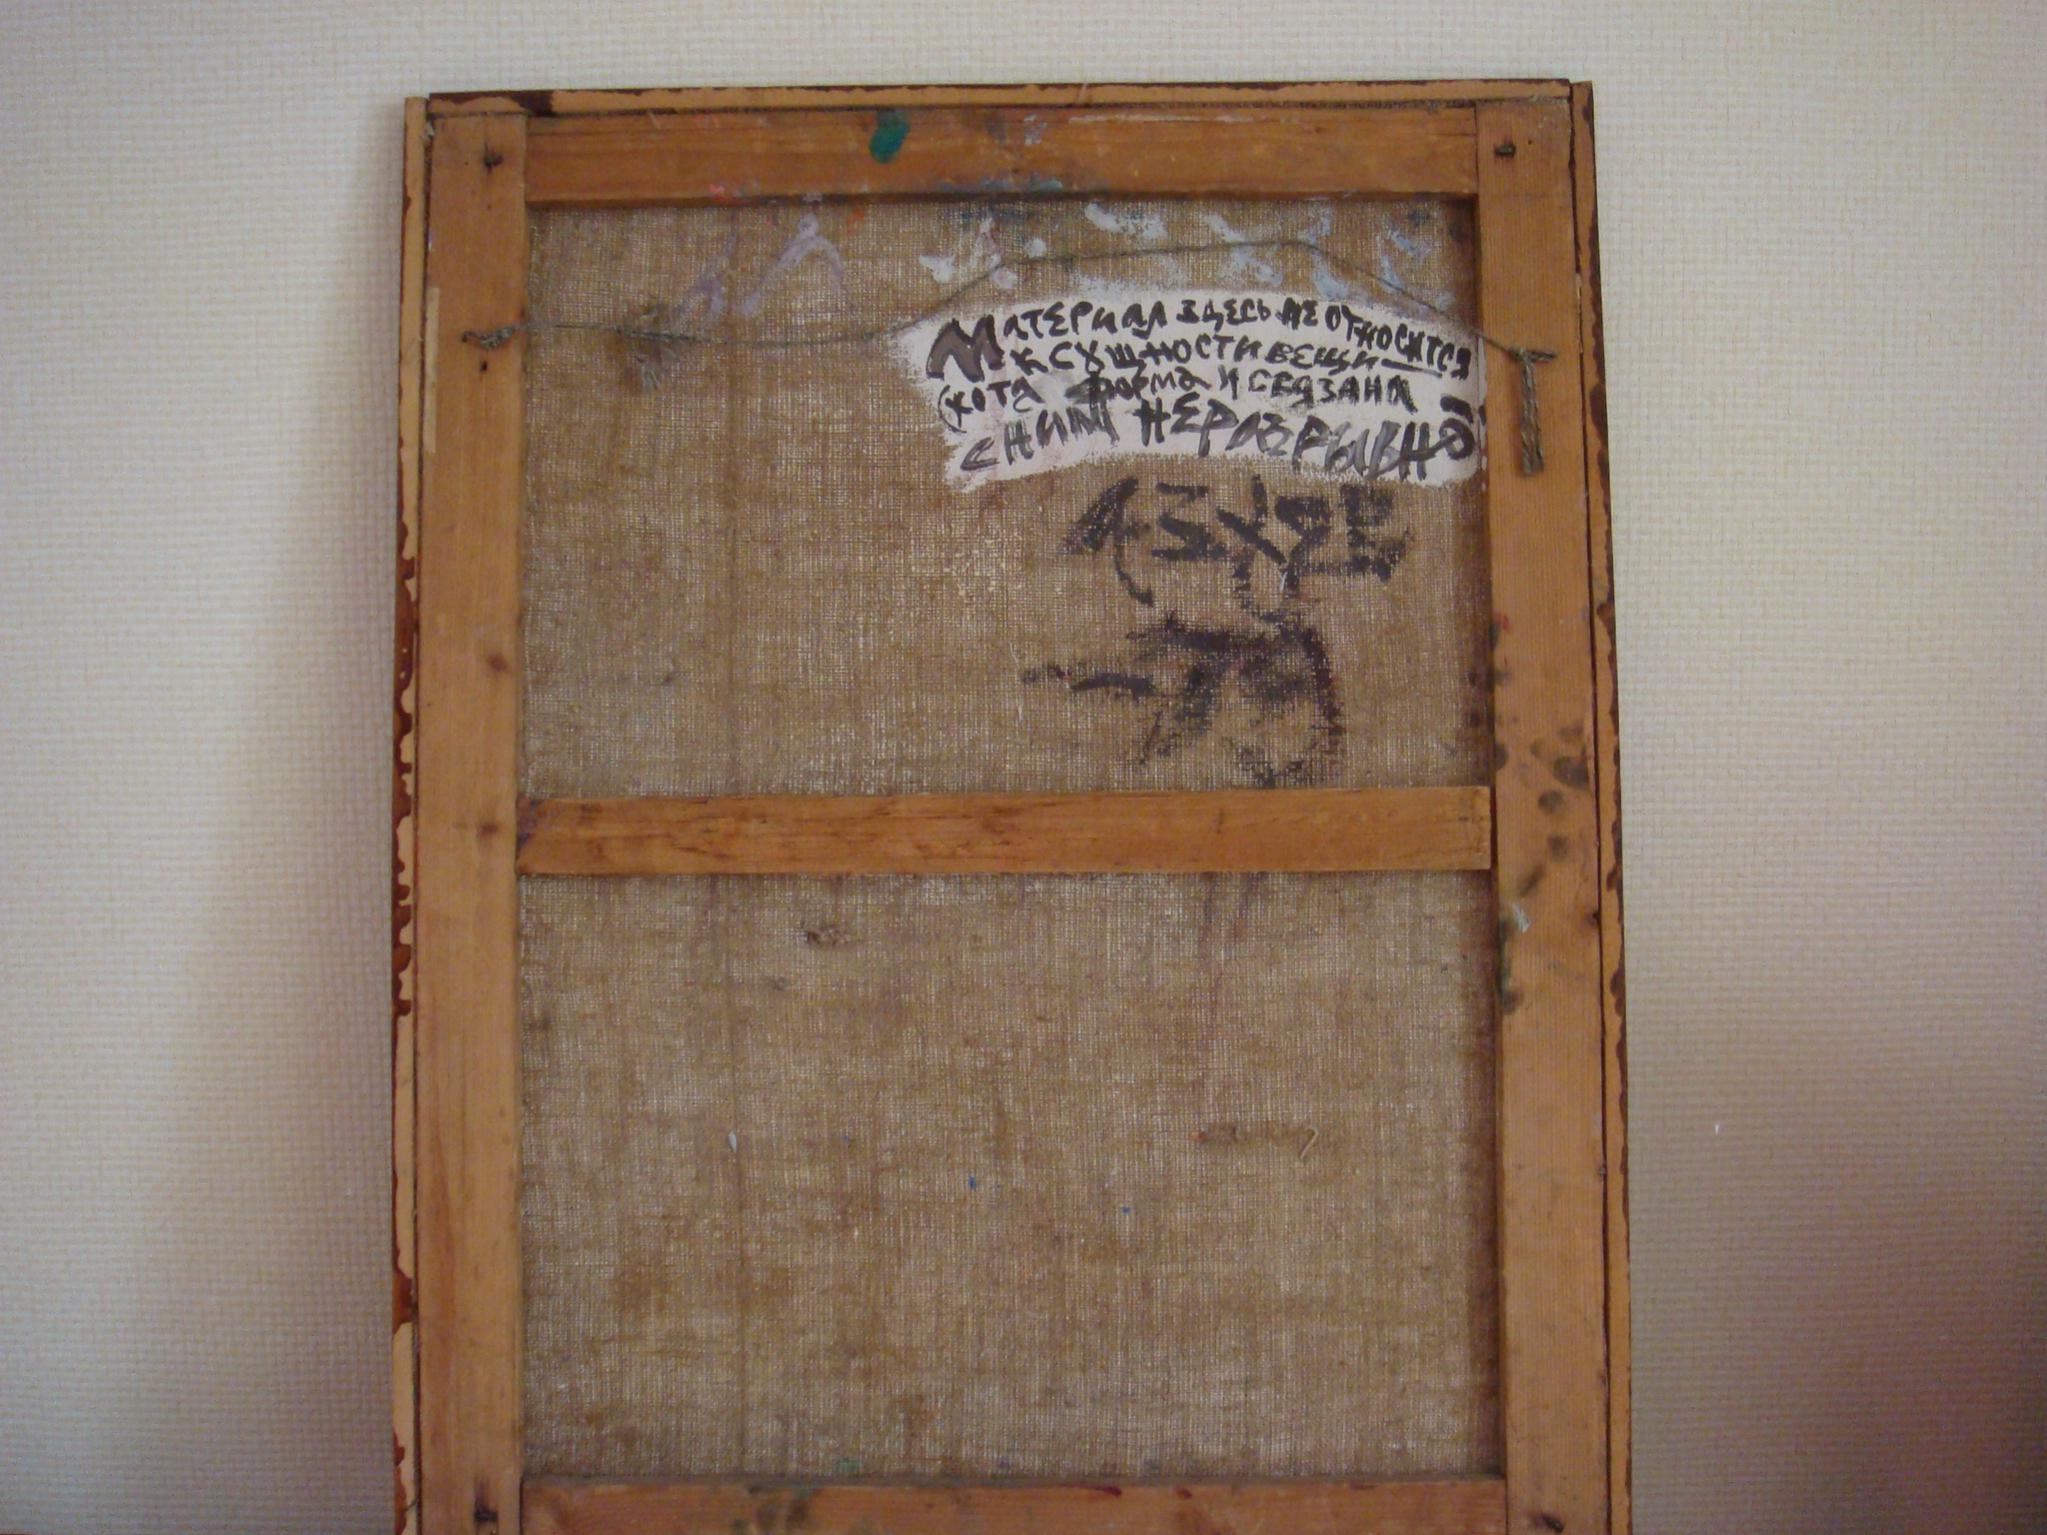 Материал здесь не относится
к сущности вещи —
(хотя форма и связана
с ним неразрывно